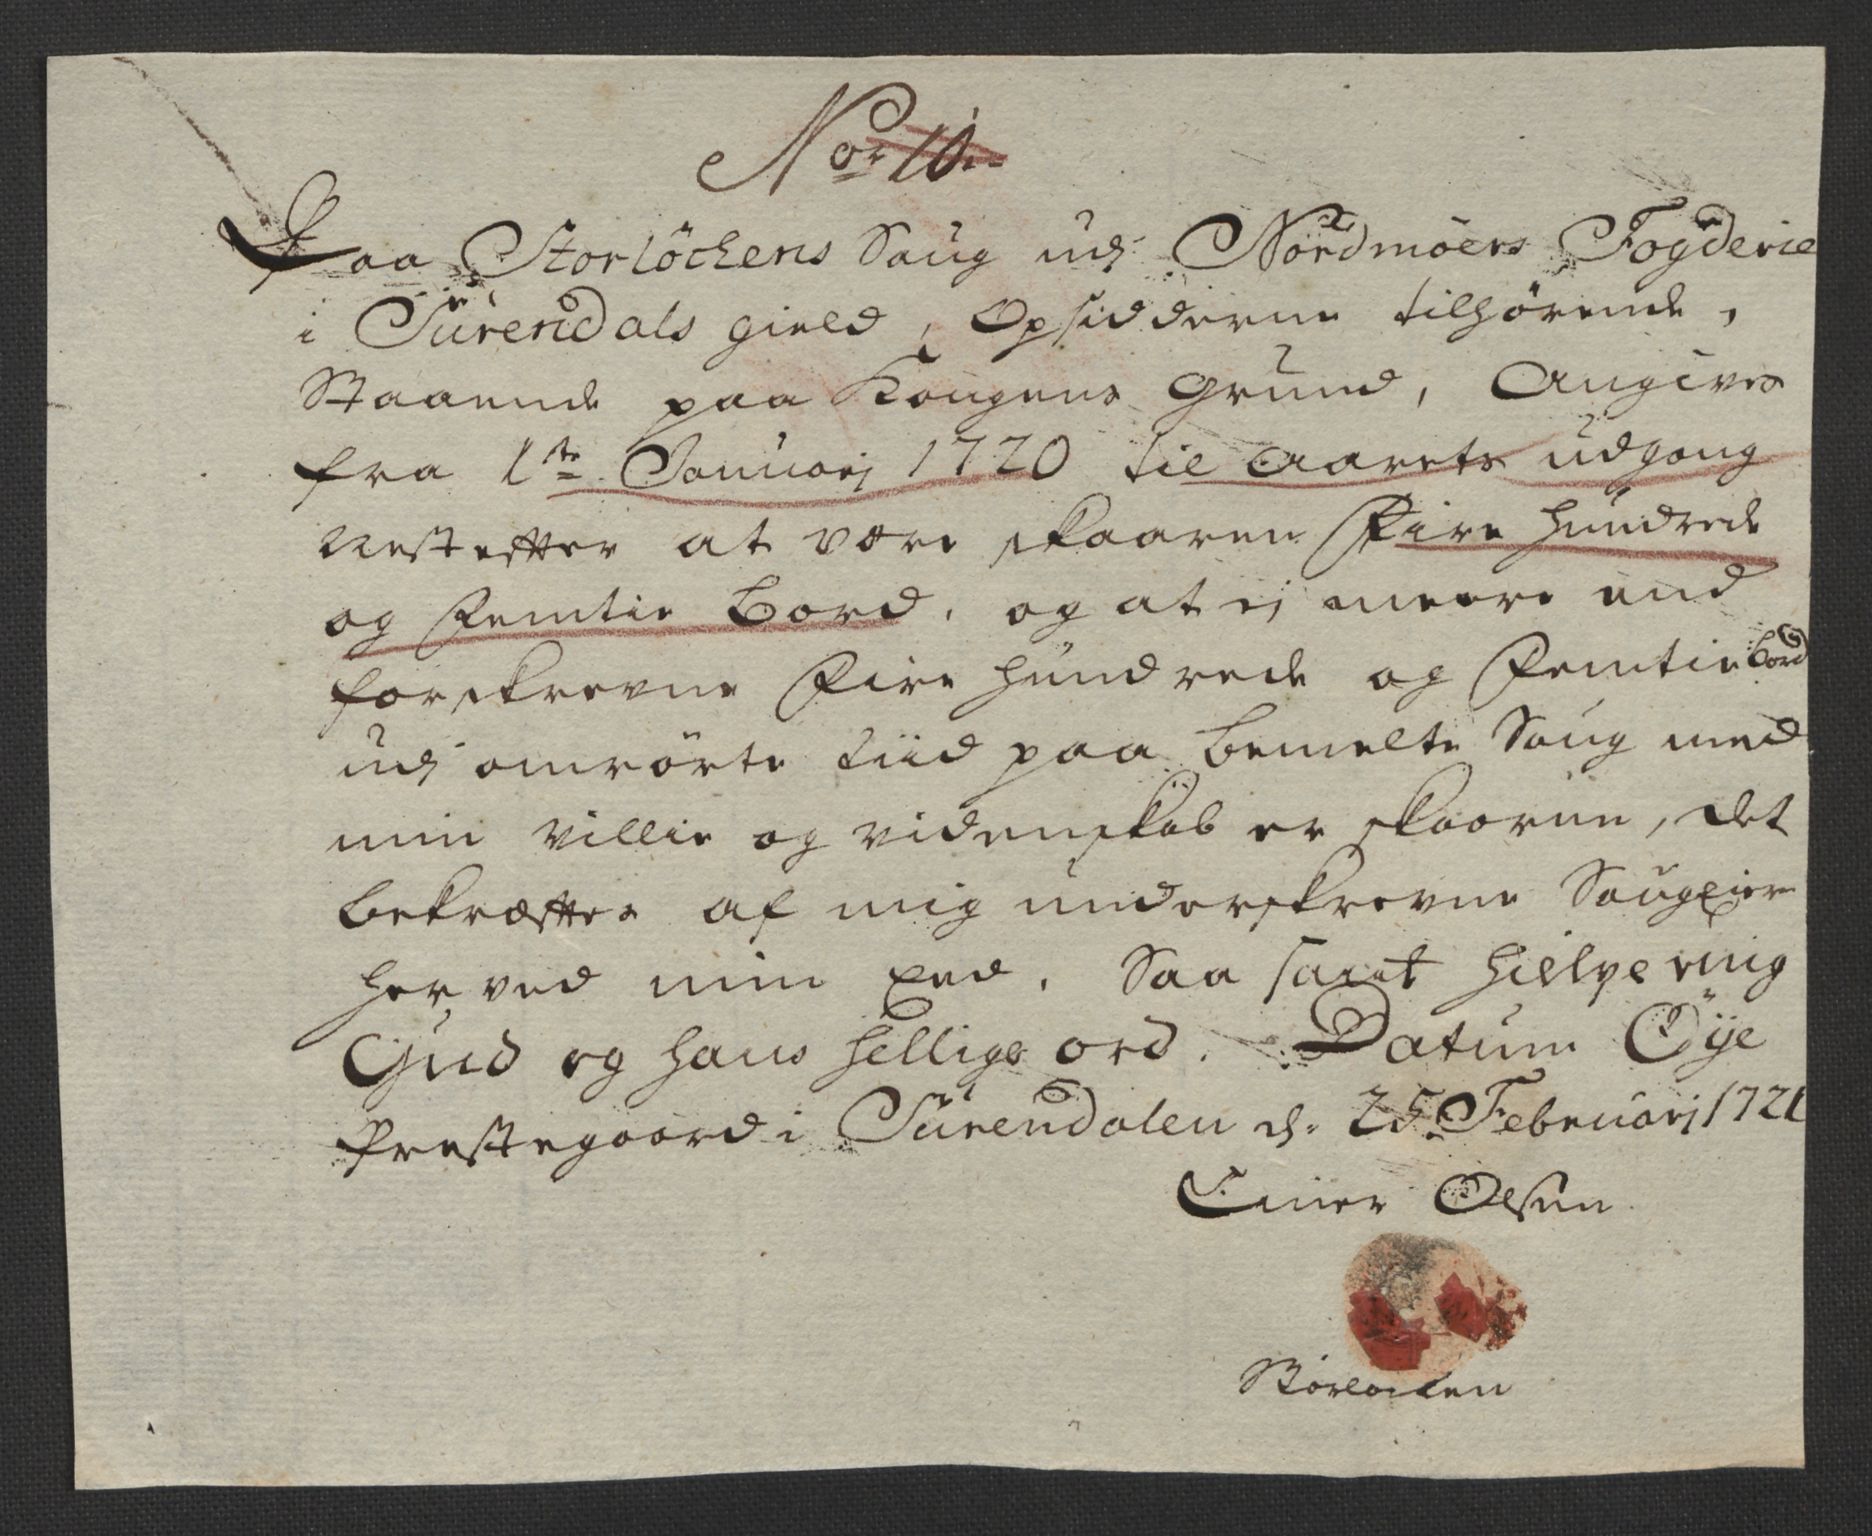 No 10.
Paa Storlöckens Saug udj Nordmöers Fogderie
i Surendals gield, Opsidderne tilhörende,
Staaende paa Kongens Grund, Angives
fra 1ste Januarj 1720 til Aarets udgang
nestefter at være skaaren Fire hundrede
og Femtie bord, og at ej meere end
forskrevne Fire hundrede og Femtie bord
udj omrörte tiid paa bemelte Saug med
min villie og videnskab er skaarne, det
bekræfftes af mig underskrevne Saugeier
herved min Eed. Saa sant hielpe mig
Gud og hans hellige ord. Datum Öÿe
Prestegaard i Surendalen d. 25. Februarj 1721
Einer Olsen
Storlocken